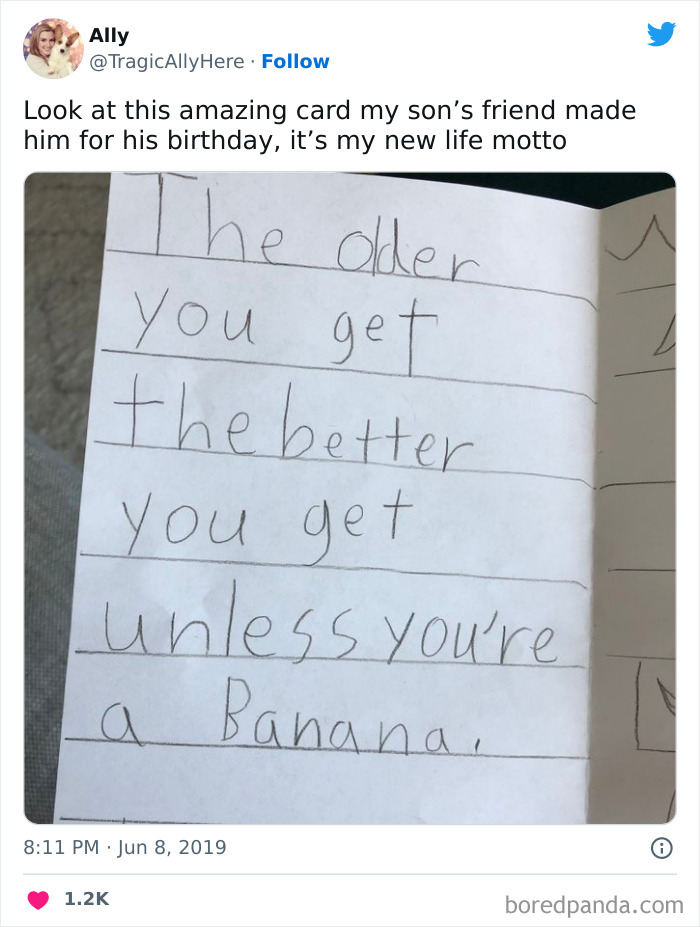 Ally
@TragicAllyHere · Follow
Look at this amazing card my son’s friend made
him for his birthday, it’s my new life motto
The older
you get
the better
you get
unless you're
a Banana.
8:11 PM · Jun 8, 2019
1.2K
boredpanda.com